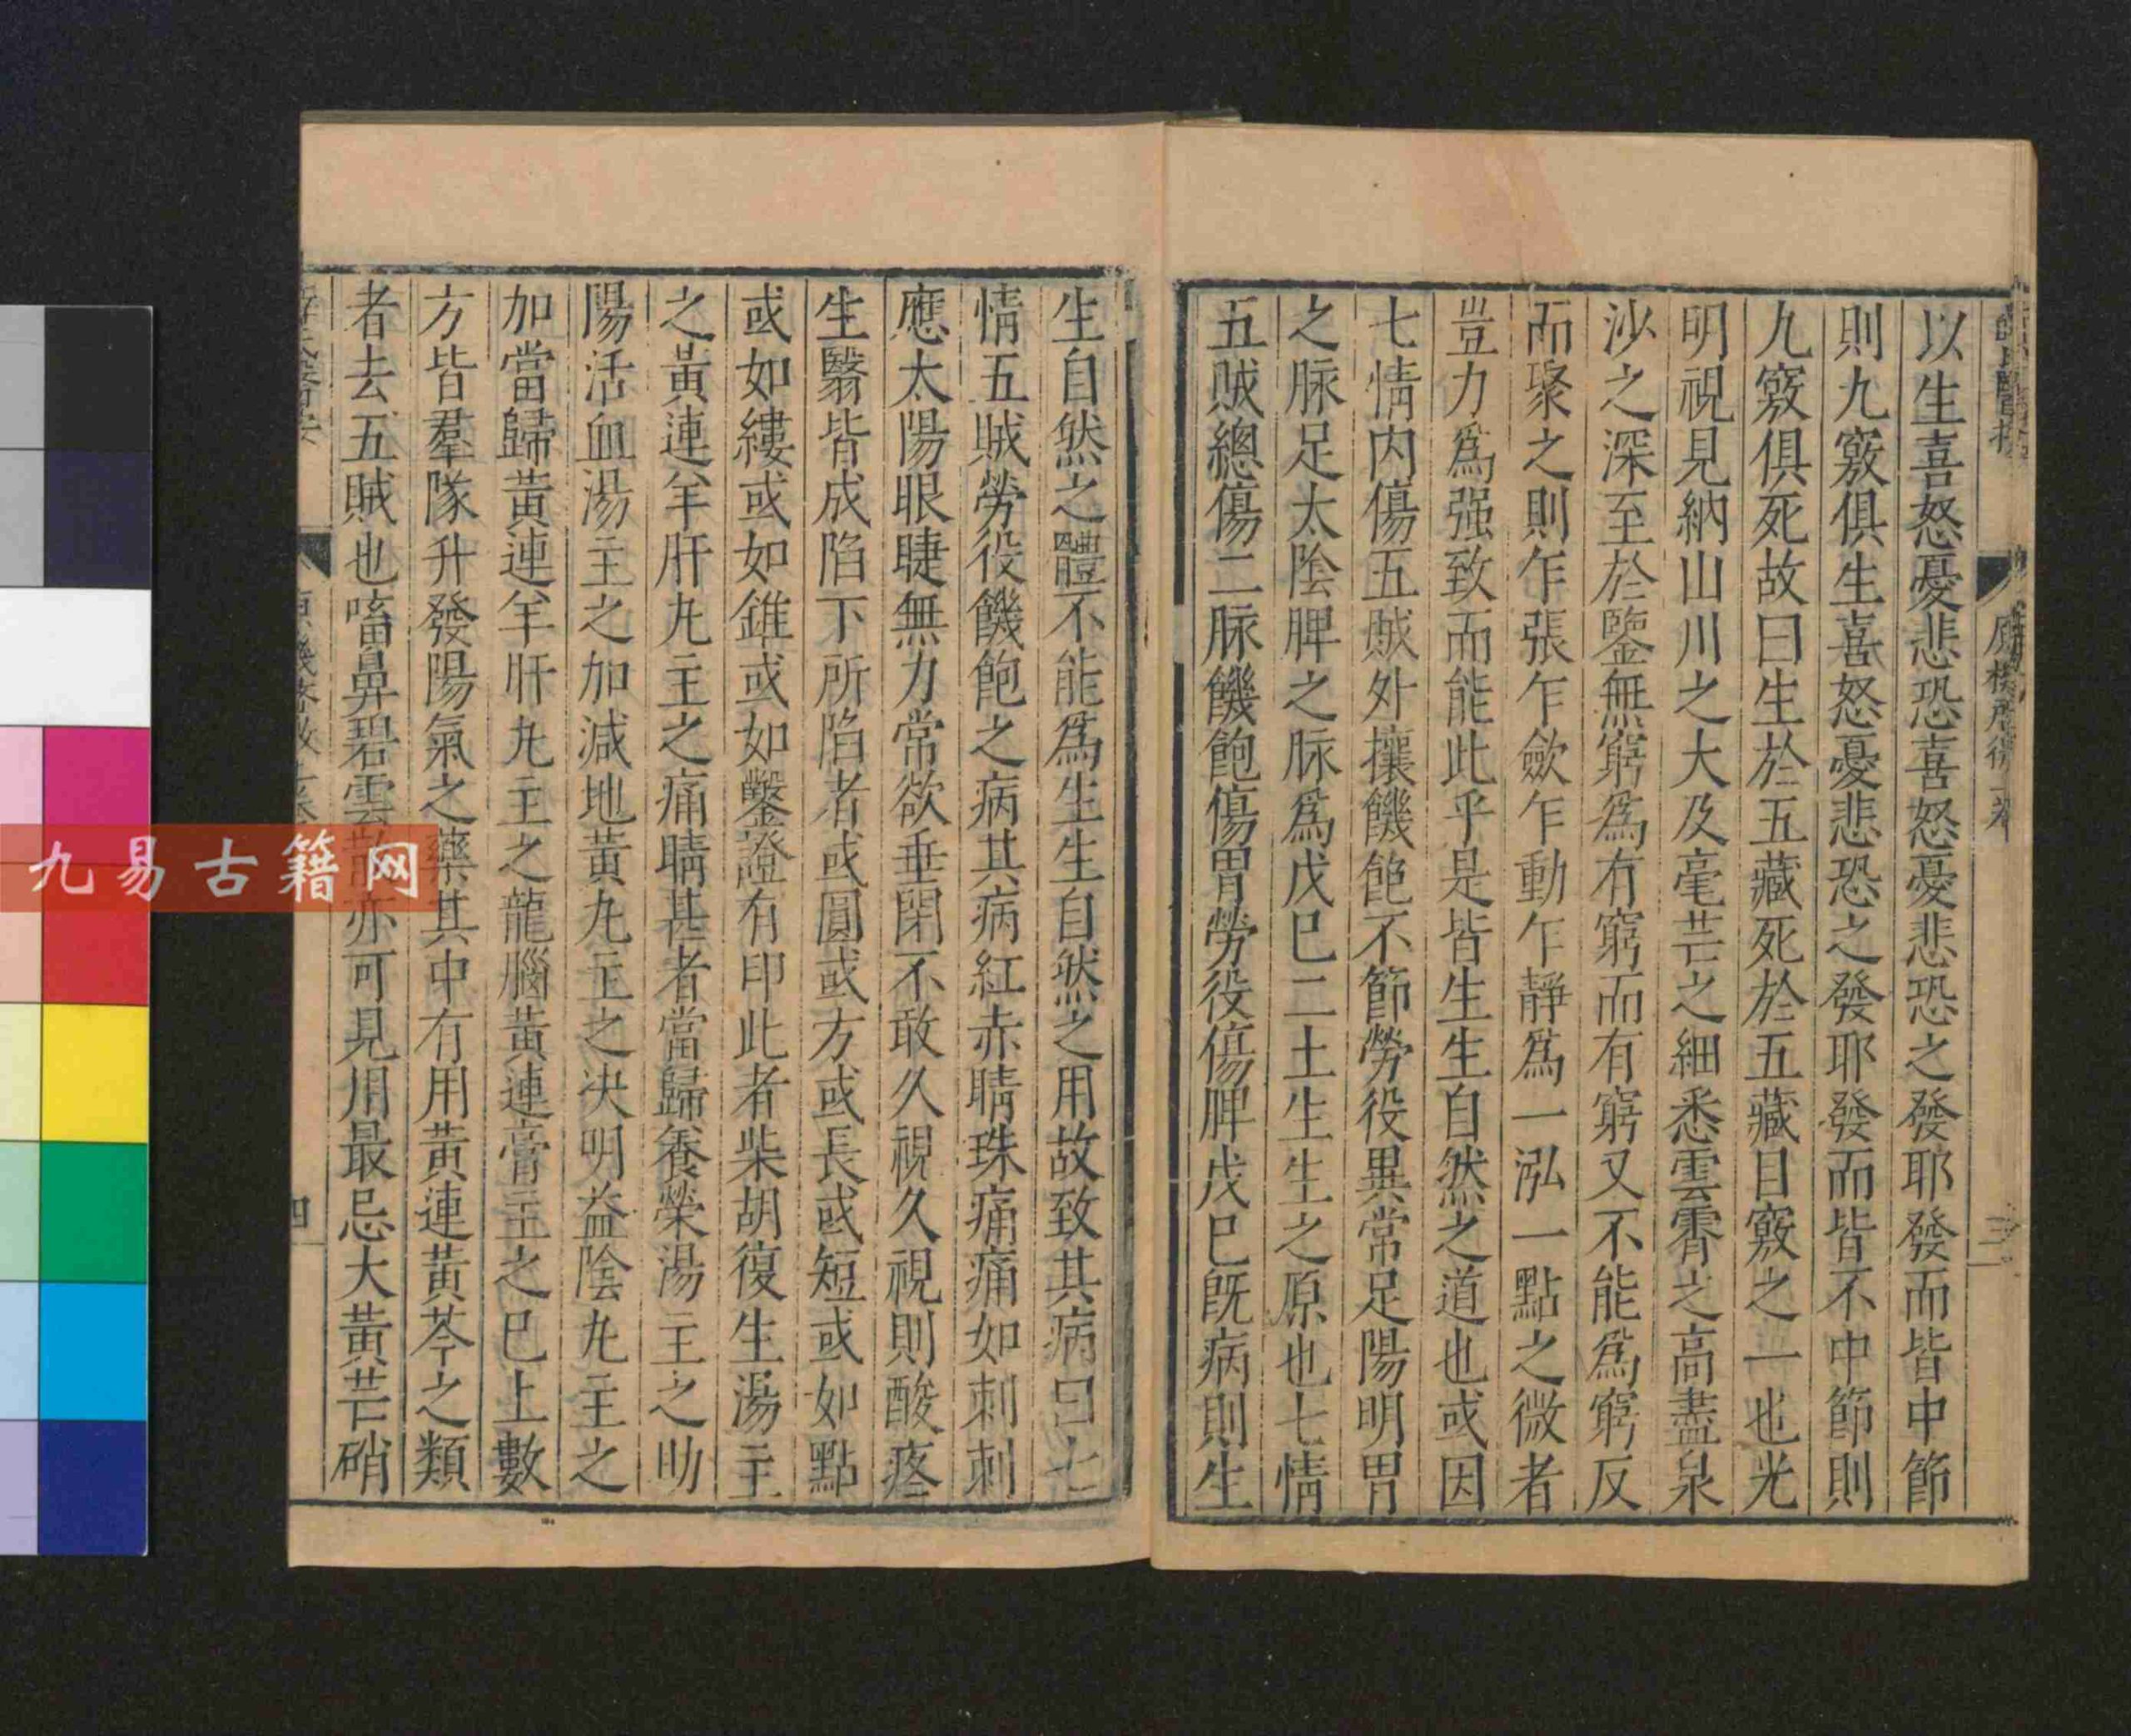 以生喜怒憂悲恐喜怒憂悲恐之發耶發而皆中節
則九竅俱生喜怒憂悲恐之發耶發而皆不中節則
九竅俱死故曰生於五藏死於五藏目竅之一也光
明視見納山川之大及毫芒之細悉雲霄之高盡泉
沙之深至於鑒無窮爲有窮而有窮又不能爲窮反
而聚之則乍張乍歛乍動乍靜爲一泓一點之微者
豈力爲强致而能此乎是皆生生自然之道也或因
七情内傷五賊外攘饑飽不節勞役異常足陽明胃
之脉足太陰脾之脉爲戊巳二土生生之原也七情
五賊總傷二脉饑飽傷胃勞役傷脾戊巳既病則生
生自然之體不能爲生生自然之用故致其病曰七
情五賊勞役饑飽之病其病紅赤睛珠痛痛如刺刺
應太陽眼睫無力常欲垂閉不敢久視久視則酸疼
生翳皆成陷下所陷者或圓或方或長或短或如點
或如縷或如錐或如鑿證有印此者柴胡復生湯主
之黃連羊肝丸主之痛睛甚者當歸養榮湯主之助
陽活血湯主之加減地黃丸主之决明益陰丸主之
加當歸黃連羊肝丸主之龍腦黃連膏主之已上數
方皆羣隊升發陽氣之藥其中有用黃連黃芩之類
者去五賊也㗜鼻碧雲散亦可見用最忌大黃芒硝
四
九易古籍网